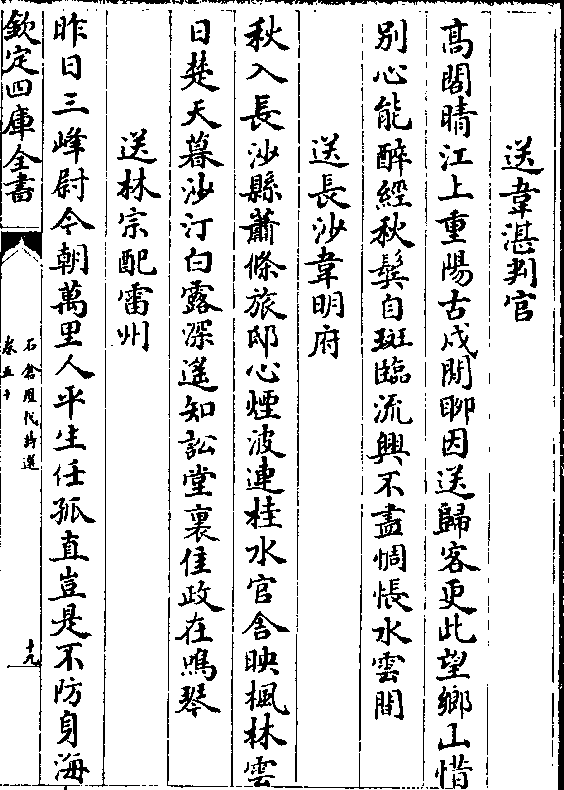 送韋湛判官
高閣晴江上重陽古戍間聊因送歸客更此望鄉山惜
別心能醉經秋鬢自斑臨流興不盡惆悵水雲間
送長沙韋明府
秋入長沙縣蕭條旅邸心煙波連桂水官舍映楓林雲
日楚天暮沙汀白露深遙知訟堂裏佳政在鳴琴
送林宗配雷州
昨日三峰尉今朝萬里人平生任孤直豈是不防身海
欽定四庫全書
石倉歷代詩選
卷五十
十九